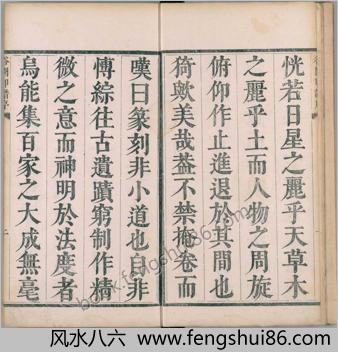 恍若日星之麗乎天草木
之麗乎土而人物之周旋
俯仰作止進退於其間也
猗歟美哉葢不禁掩卷而
嘆曰篆刻非小道也自非
博綜往古遺蹟窮制作精
微之意而神明於法度者
烏能集百家之大成無毫
風水八六 www.fengshui86.com